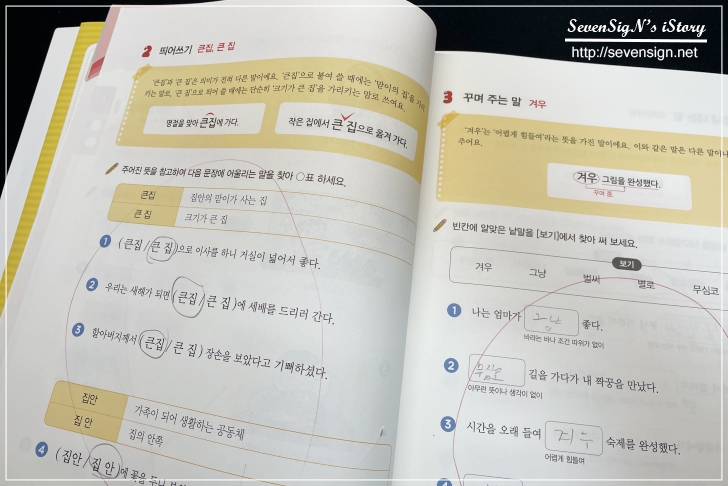 SevenSigN's iStory
http://sevensign.net
2 띄어쓰기 큰집, 큰 집
'큰집'과 '큰 집'은 의미가 전혀 다른 말이에요. '큰집'으로 붙여 쓸 때에는 '맏이의 집'을 가리
키는 말로, '큰 집'으로 띄어 쓸 때에는 단순히 '크기가 큰 집'을 가리키는 말로 쓰여요.
명절을 맞아 큰집에 가다.
작은 집에서 큰 집으로 옮겨 가다.
주어진 뜻을 참고하여 다음 문장에 어울리는 말을 찾아 ○표 하세요.
큰집 집안의 맏이가 사는 집
큰 집 크기가 큰 집
1 (큰집 / 큰 집)으로 이사를 하니 거실이 넓어서 좋다.
2 우리는 새해가 되면 (큰집 / 큰 집)에 세배를 드리러 간다.
3 할아버지께서 (큰집 / 큰 집) 장손을 보았다고 기뻐하셨다.
집안 가족이 되어 생활하는 공동체
집 안 집의 안쪽
4 (집안 / 집 안)에 꽃을 두니
3 꾸며 주는 말 겨우
'겨우'는 '어렵게 힘들여'라는 뜻을 가진 말이에요. 이와 같은 말은 다른 말이나
주어요.
겨우 그림을 완성했다.
꾸며 줌.
빈칸에 알맞은 낱말을 [보기]에서 찾아 써 보세요.
보기
겨우 그냥 벌써 별로 무심코
1 나는 엄마가 그냥 좋다.
바라는 바나 조건 따위가 없이
2 길을 가다가 내 짝꿍을 만났다.
아무런 뜻이나 생각이 없이
3 시간을 오래 들여 겨우 숙제를 완성했다.
어렵게 힘들여